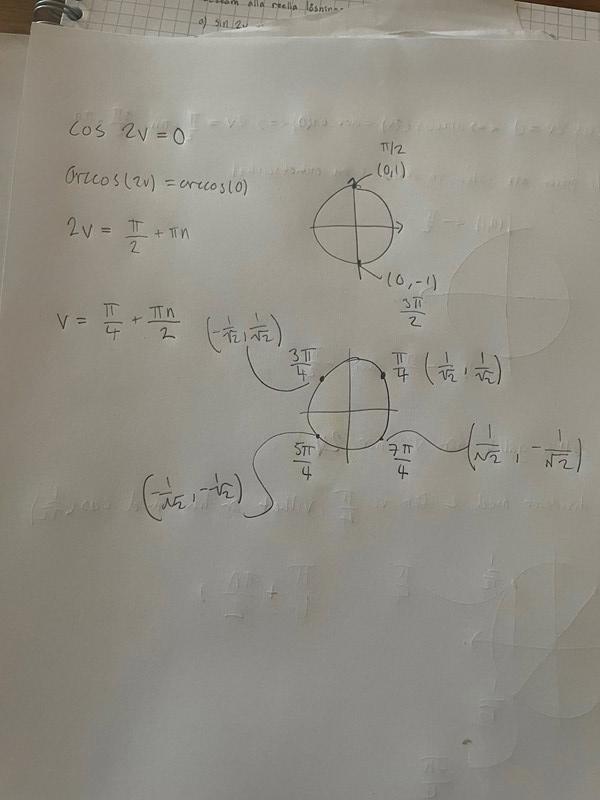 a) sin 2v
cos 2v = 0
arccos(2v) = arccos(0)
2v = π/2 + πn
π/2
(0,1)
(0,-1)
3π/2
v = π/4 + πn/2
(-1/√2, 1/√2)
3π/4
π/4 (1/√2, 1/√2)
5π/4
7π/4
(1/√2, -1/√2)
(-1/√2, -1/√2)